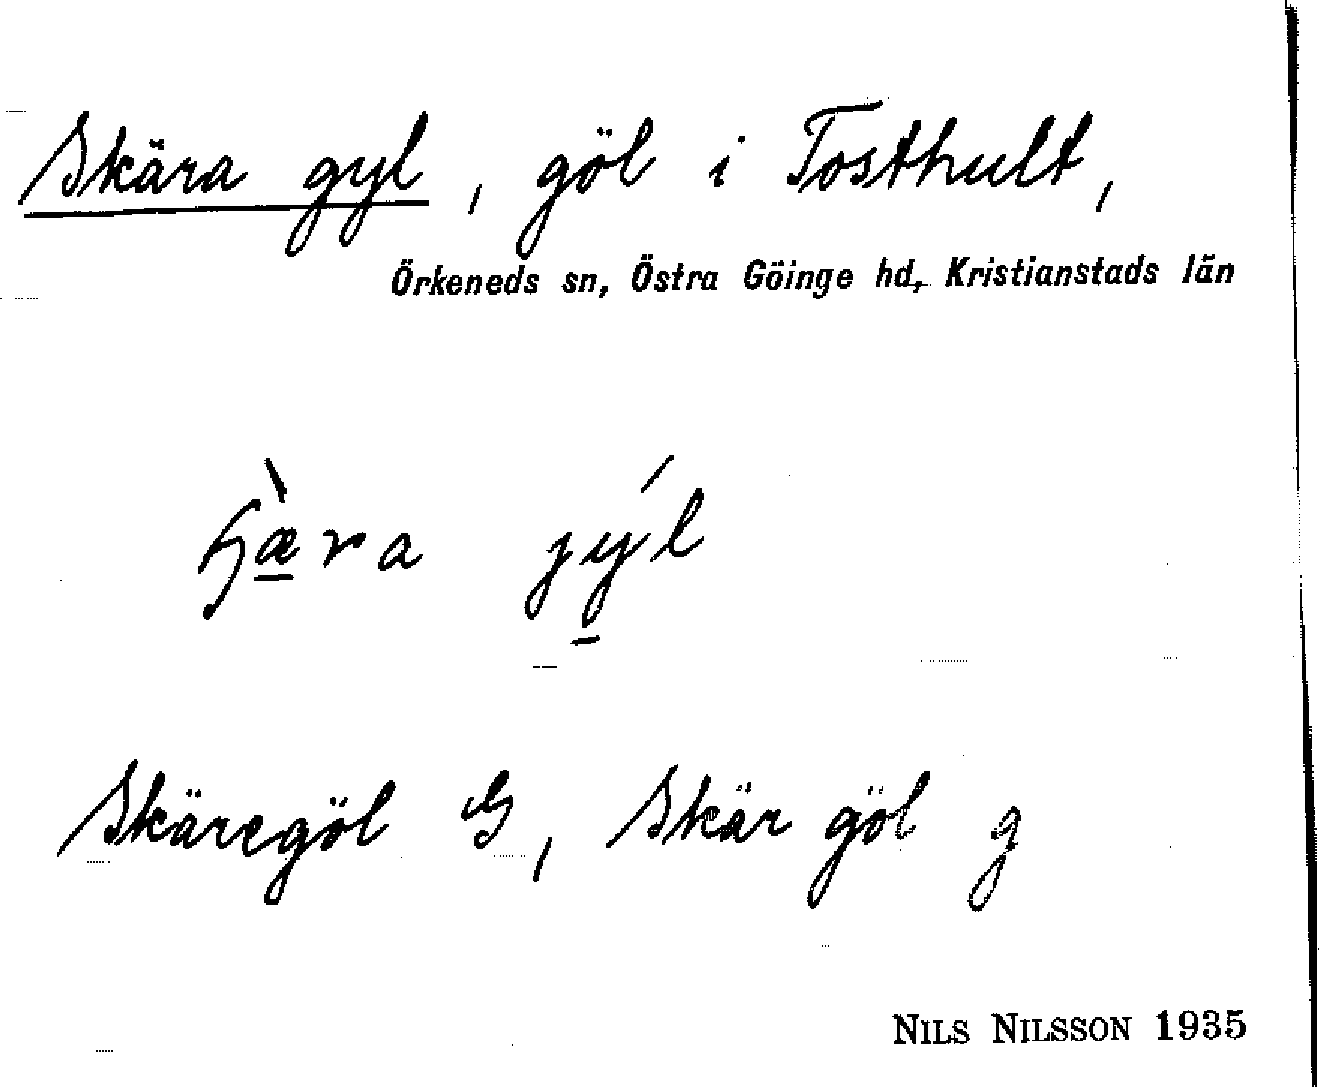 Skära gyl, göl i Tosthult,
Örkeneds sn, Östra Göinge hd, Kristianstads län
ɧæ̀ra jýl
Skäregöl G, Skär göl g
NILS NILSSON 1935